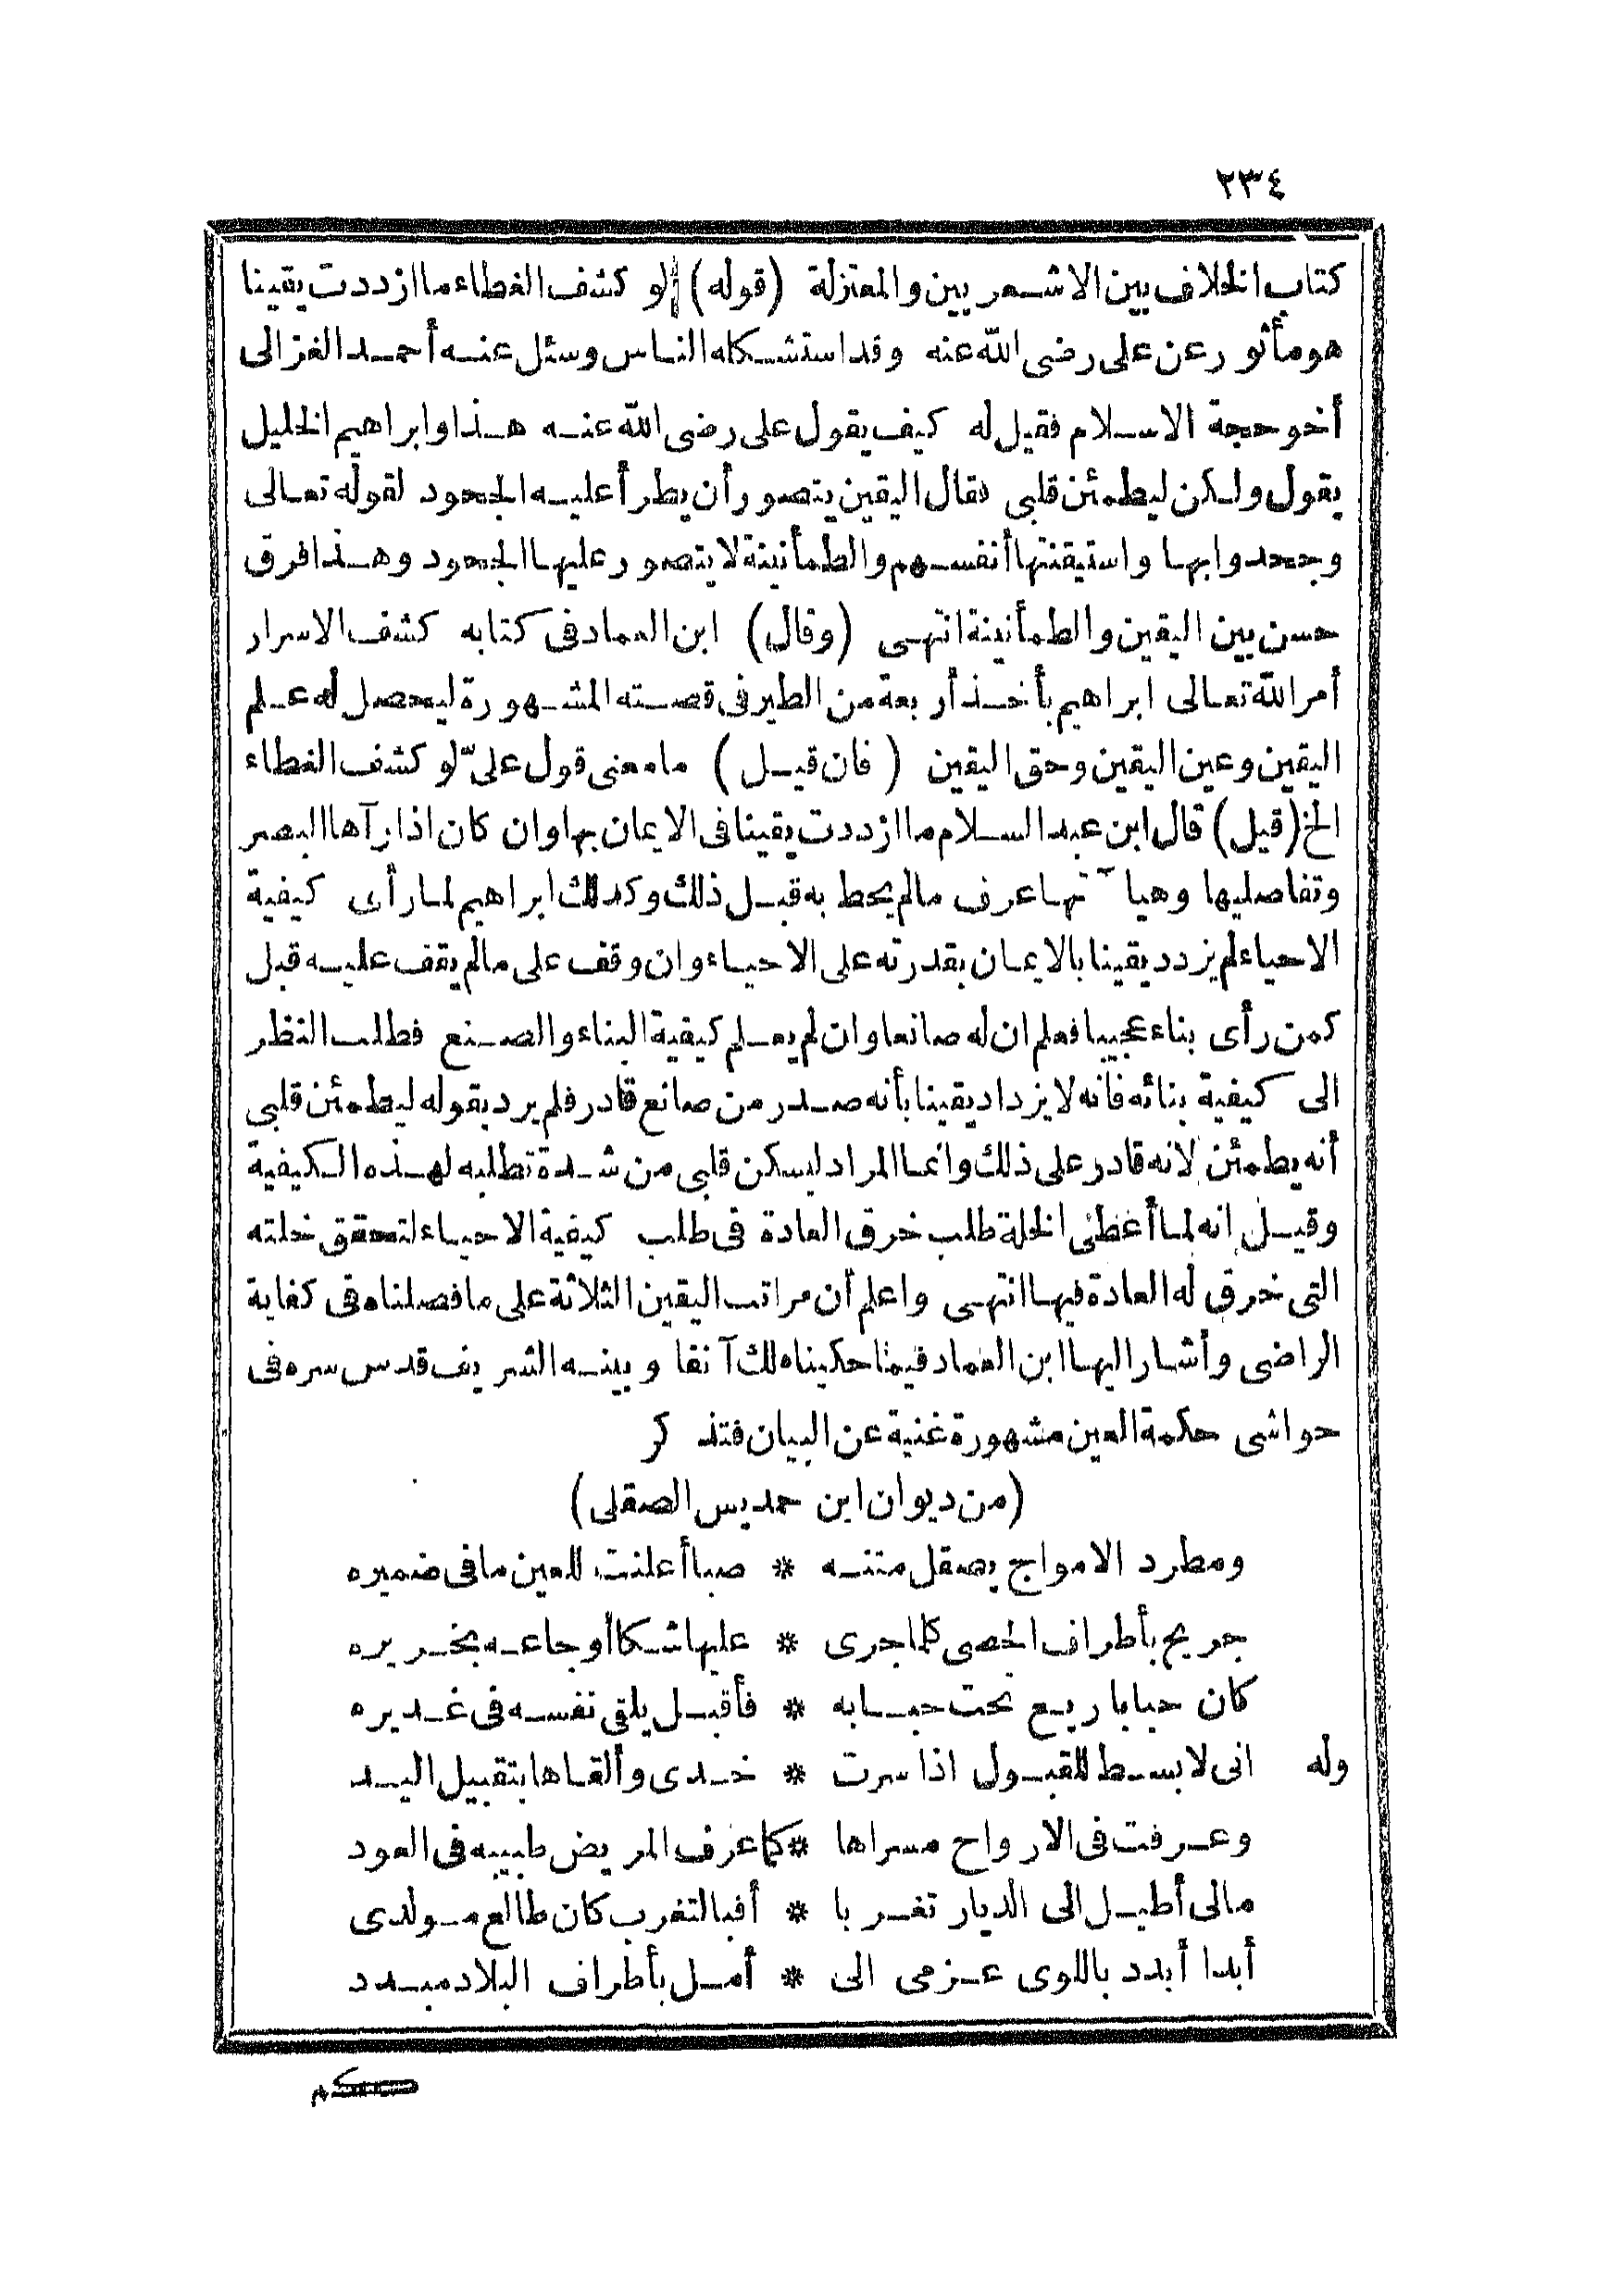 ٢٣٤
كتاب الخلاف بين الاشعريين والمعتزلة (قوله) لو كشف الغطاء ما ازددت يقينا
هو مأثور عن على رضى الله عنه وقد استشكله الناس وسئل عنه أحمد الغزالى
أخو حجة الاسلام فقيل له كيف يقول على رضى الله عنه هذا وابراهيم الخليل
يقول ولكن ليطمئن قلبى فقال اليقين يتصور أن يطرأ عليه الجحود لقوله تعالى
وجحدوا بها واستيقنتها أنفسهم والطمأنينة لا يتصور عليها الجحود وهذا فرق
حسن بين اليقين والطمأنينة انتهى (وقال) ابن العماد فى كتابه كشف الاسرار
أمر الله تعالى ابراهيم بأخذ أربعة من الطير فى قصته المشهورة ليحصل له علم
اليقين وعين اليقين وحق اليقين (فان قيل) ما معنى قول علىّ لو كشف الغطاء
الخ (قيل) قال ابن عبد السلام ما ازددت يقينا فى الايمان بها وان كان اذا رآها البصر
وتفاصليها وهيآتها عرف مالم يحط به قبل ذلك وكذلك ابراهيم لما رأى كيفية
الاحياء لم يزدد يقينا بالايمان بقدرته على الاحياء وان وقف على مالم يقف عليه قبل
كمن رأى بناء عجيبا فعلم ان له صانعا وان لم يعلم كيفية البناء والصنع فطلب النظر
الى كيفية بنائه فانه لا يزداد يقينا بأنه صدر من صانع قادر فلم يرد بقوله ليطمئن قلبى
أنه يطمئن لانه قادر على ذلك وانما المراد ليسكن قلبى من شدة تطلبه لهذه الكيفية
وقيل انه لما أعطى الخلة طلب خرق العادة فى طلب كيفية الاحياء لتحقق خلته
التى خرق له العادة فيها انتهى واعلم أن مراتب اليقين الثلاثة على ما فصلناه فى كفاية
الراضى وأشار اليها ابن العماد فيما حكيناه لك آنفا وبينه الشريف قدس سره فى
حواشى حكمة العين مشهورة غنية عن البيان فتذكر
(من ديوان ابن حمديس الصقلى)
ومطرد الامواج يصقل متنه * صبا أعلنت للعين ما فى ضميره
جريح بأطراف الحصى كلما جرى * عليها شكا أوجاعه بخريره
كان حبابا ريع تحت حبابه * فأقبل يلقى نفسه فى غديره
وله انى لابسط للقبول اذا سرت * خدى وألقاها بتقبيل اليد
وعرفت فى الارواح مسراها * كما عرف المريض طبيبه فى العود
مالى أطيل الى الديار تغربا * أفبالتغرب كان طالع مولدى
أبدا أبدد باللوى عزمى الى * أمل بأطراف البلاد مبدد